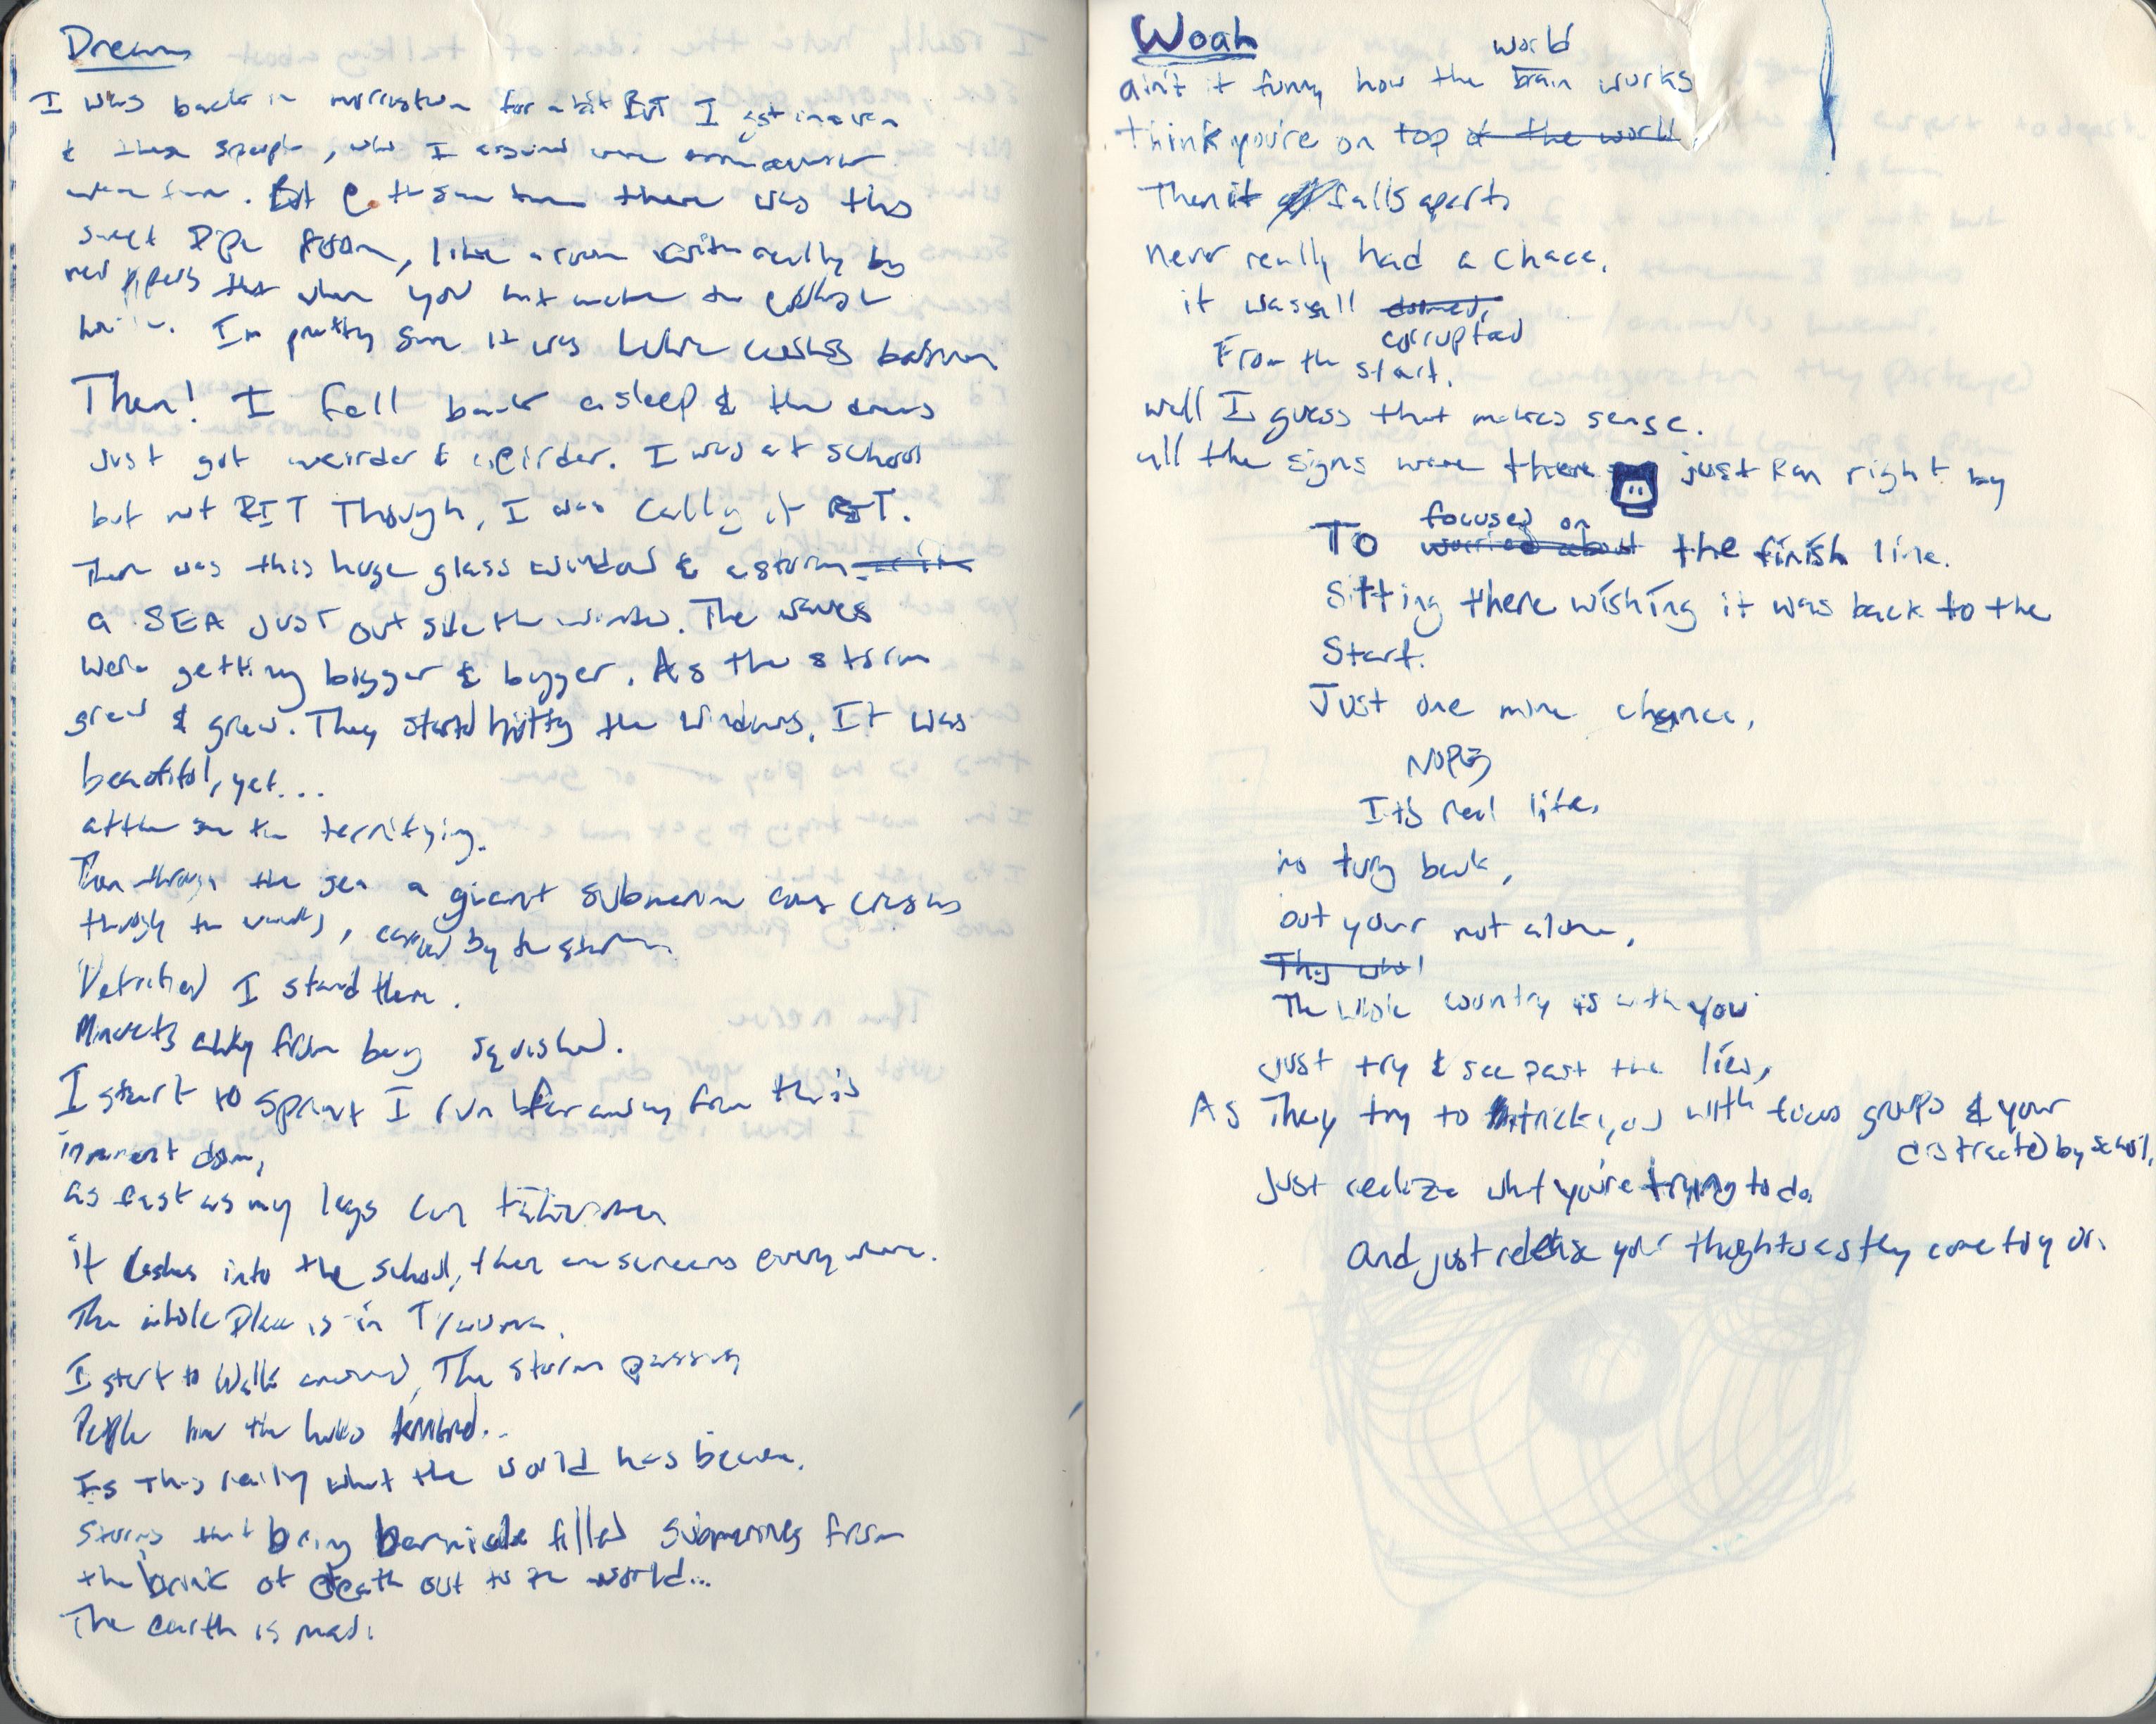 Dreams
I was back in for a bit BUT I got in a van
& these people, who I assumed were
were fun. But @ the same time there was this
sweet Pipe room, like a room with really big
red pippers that when you hit make the coolest
I'm pretty sure it was basem
Then! I fell back asleep & the dreams
Just got weirder & weirder. I was at school
but not RIT Though, I was calling it RIT.
There was this huge glass window & a storm.
a SEA JUST outside the window. The waves
were getting bigger & bigger. As the storm
grew & grew. They started hitting the windows. It was
beautiful, yet...
at the same time terrifying.
Then through the sea a giant submarine comes crashing
through the window, carried by the storm.
Petrified I stand there.
Minuets away from being squished.
I start to sprint I run far away from this
iminent doom,
as fast as my legs can
it crashes into the school, there are screens everywhere.
The whole place is in Trauma.
I start to walk around, The storm passing
People the
Is this really what the world has become.
Storms that bring barnicle filled submarines from
the brink of death out to the world...
The earth is mad.
Woah
world
ain't it funny how the brain works
think you're on top of the world
Then it all falls apart.
never really had a chace.
it was all doomed,
corrupted
From the start.
well I guess that makes sense.
all the signs were there just ran right by
focused on
To worried about the finish line.
Sitting there wishing it was back to the
Start.
Just one more chance,
NOPE
It's real life,
no turng back,
but your not alone,
This whol
The whole country is with you
Just try & see past the lies,
As They try to trick you with focus groups & your
distracted by school,
Just realize what you're trying to do.
And just release your thoughts as they come to you.